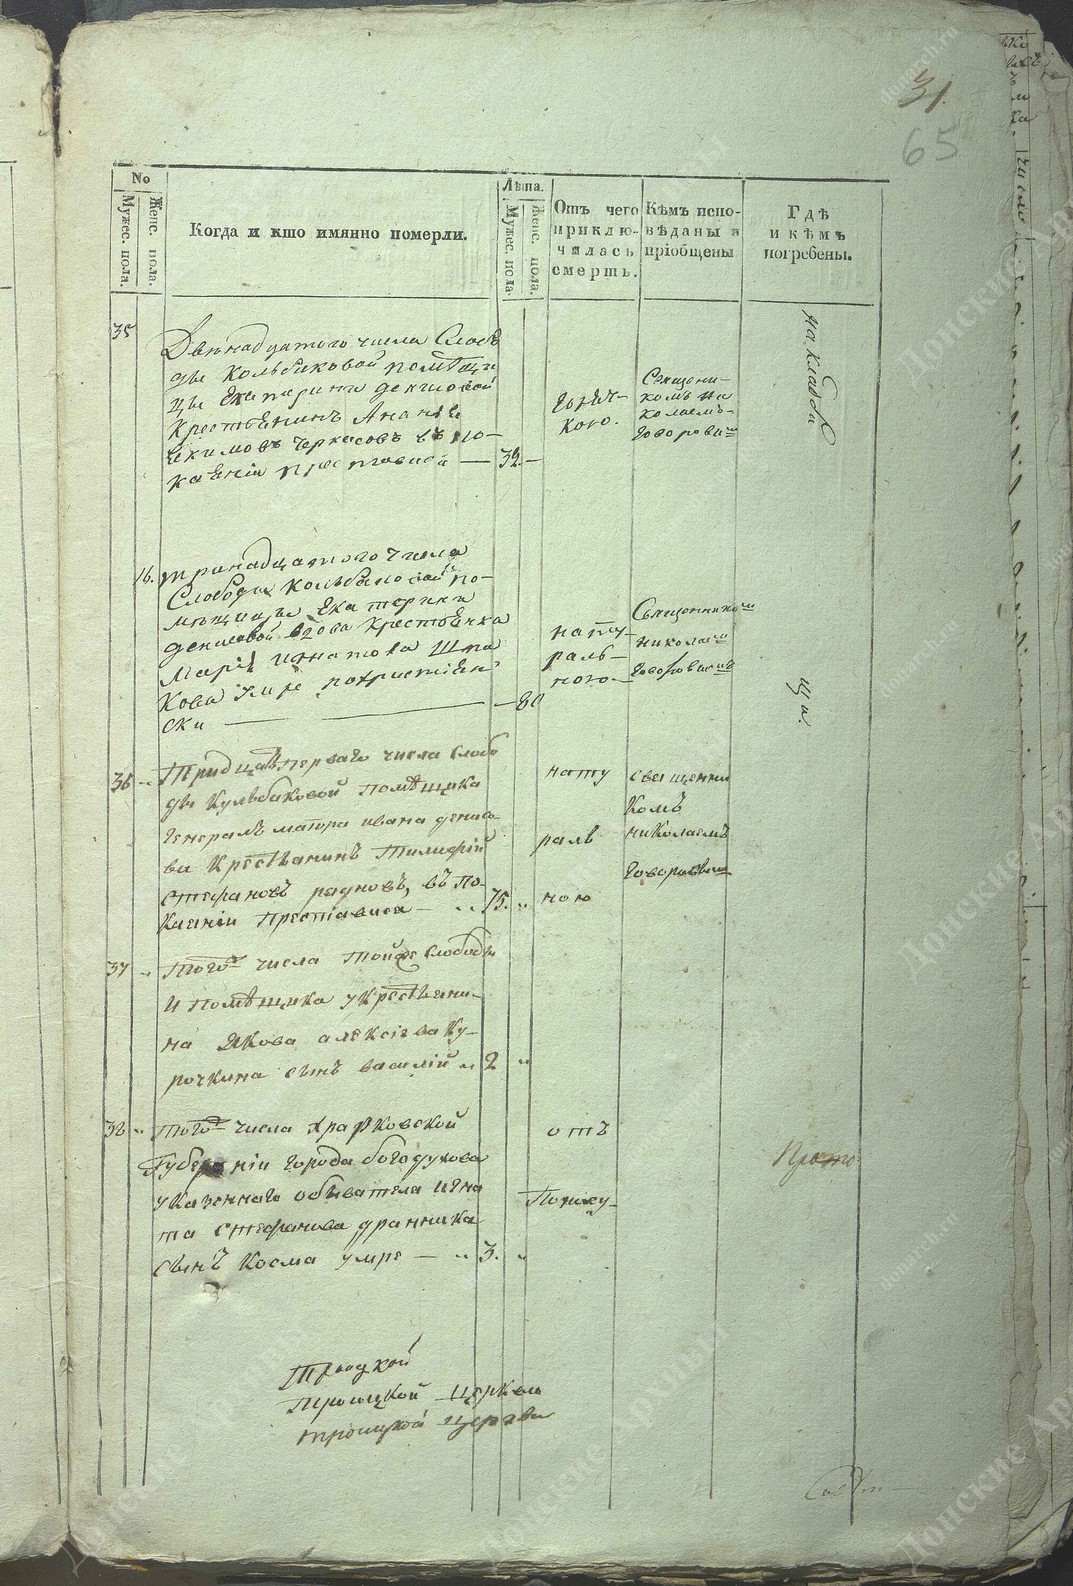 31.
65
No
Мужес. пола.
Женс. пола.
Когда и кто имянно померли.
Лѣта.
Мужес. пола
Женс. пола.
Отъ чего
приклю-
чилась
смерть.
Кѣмъ испо-
вѣданы и
пріобщены
Гдѣ
и кѣмъ
погребены.
35
Двенадцатого числа Слобо
ды Кольбаковой помѣщи
цы Екатерины денисовой
Крестьенинъ Анан
Екимовъ Черкасовъ въ по-
каѣніи преставися — 32. —
горяч-
кою.
Священи-
комъ Ни
колаемъ
Говорови
на кладби
16. тринадцатого числа
Слободы Кольбаковой по-
мѣщицы Екатерины
денисовой вдова Крестьенка
Марія Игнатова
кова умре похристіен
ски — 80
нату
раль-
ною
Священником
Николаем
Говоровимъ
ща.
36 Тридцать перваго числа слобо
ды Кульбаковой помѣщика
Генералъ маіора ивана дениso
ва Крестьанинъ
Стефановъ радновъ, въ по-
каеніи преставися — 75.
нату
раль
ною
священни
комъ
николаемъ
Говоровим
37 Того числа той же слободы
и помѣщика у крестьени-
на Якова алексіева Ку-
рочкина сынъ василій 2
38 Того числа Харковской
Губерніи города богодухова
у казеннаго обывателя игна
та стефанова дранника
сынъ Косма умре — 3.
отъ
Поносу
Прото
Троицкой
Троицкой церкви
троицкой церкви